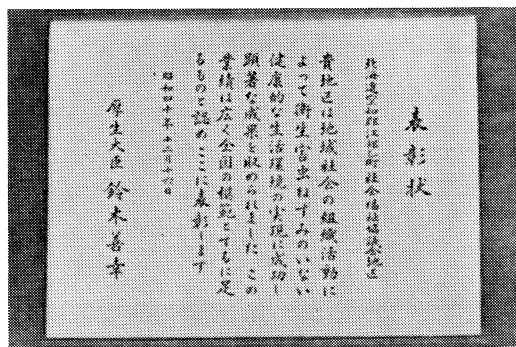 表彰状
北海道空知郡江部乙町社会福祉協議会地区
貴地区は地域社会の組織活動に
よって衛生害虫ねずみのいない
健康的な生活環境の実現に成功し
顕著な成果を収められました この
業績は広く全国の模範とするに足
るものと認めここに表彰します
昭和四十年十二月十七日
厚生大臣 鈴木善幸